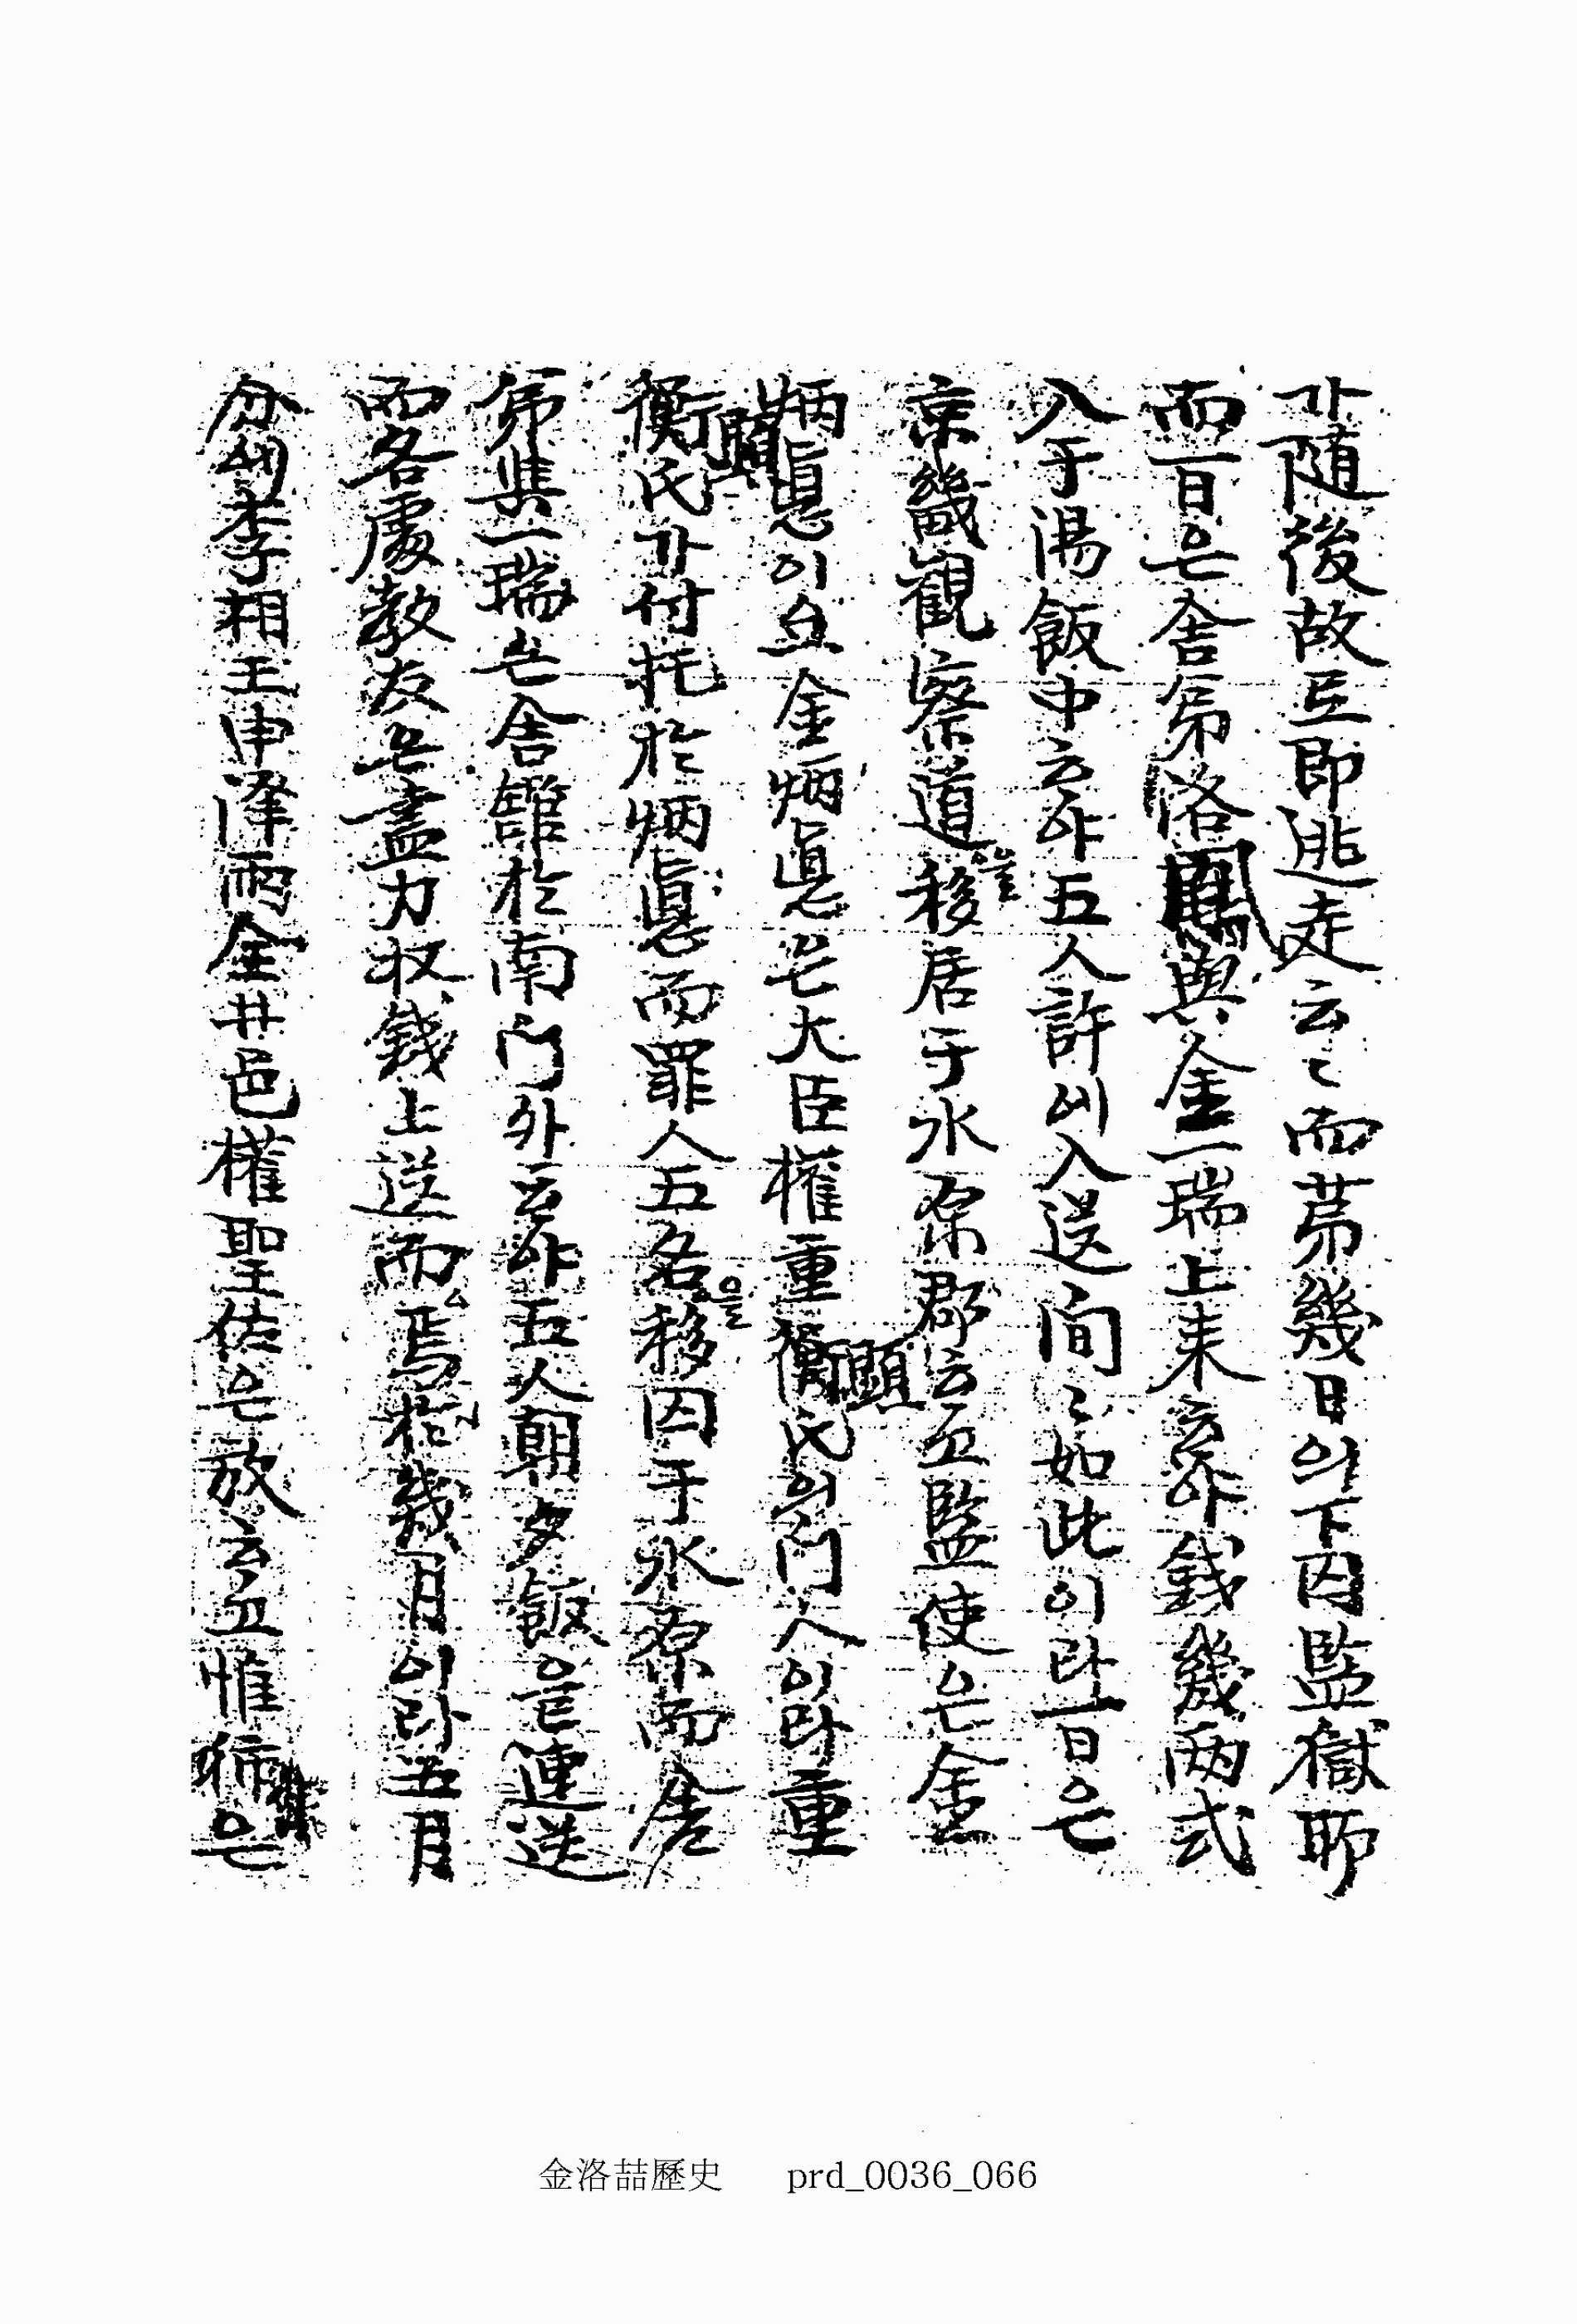 가隨後故로即逃走云〻而第幾日의下囚監獄耶
而一日은舍弟洛鳳與金一瑞上来하야錢幾兩式
入于湯飯中하야五人許에入送間〻如此이라一日은
京畿觀察道를移居于水原郡하고監使은金
炳悳이오金炳悳은大臣權重顯氏의門人이라重
顯氏가付托於炳悳而罪人五名을移囚于水原而舍
弟與一瑞은舍舘於南門外하야五人朝夕飯을連送
而各處敎友은盡力收錢上送而焉於幾月이라五月
分에李相玉申澤雨全井邑權聖佐은放하고惟은
金洛喆歷史 prd_0036_066